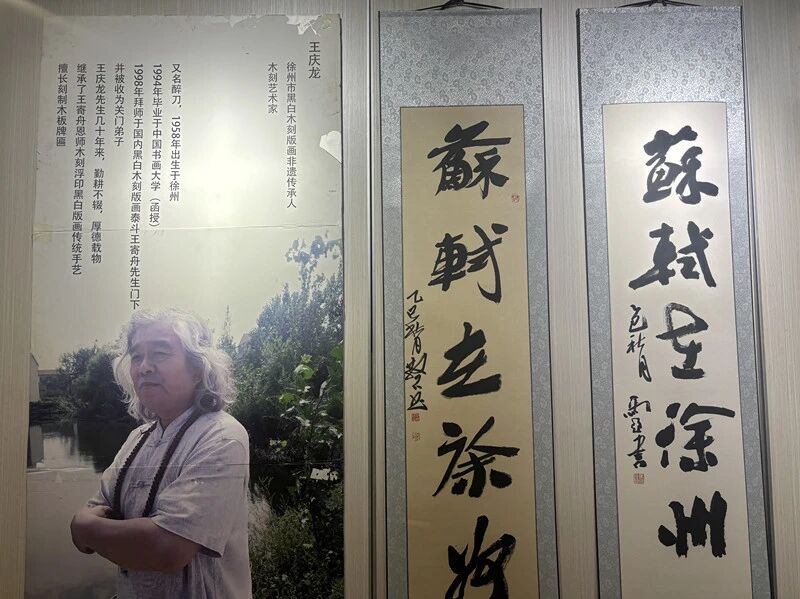 王庆龙
徐州市黑白木刻版画非遗传承人
木刻艺术家
又名醉刀，1958年出生于徐州
1994年毕业于中国书画大学（函授）
1998年拜师于国内黑白木刻版画泰斗王寄舟先生门下
并被收为关门弟子
王庆龙先生几十年来，勤耕不辍，厚德载物
继承了王寄舟恩师木刻浮印黑白版画传统手艺
擅长刻制木板牌匾
蘇軾在徐州
乙巳秋月
蘇軾在徐州
秋月
書